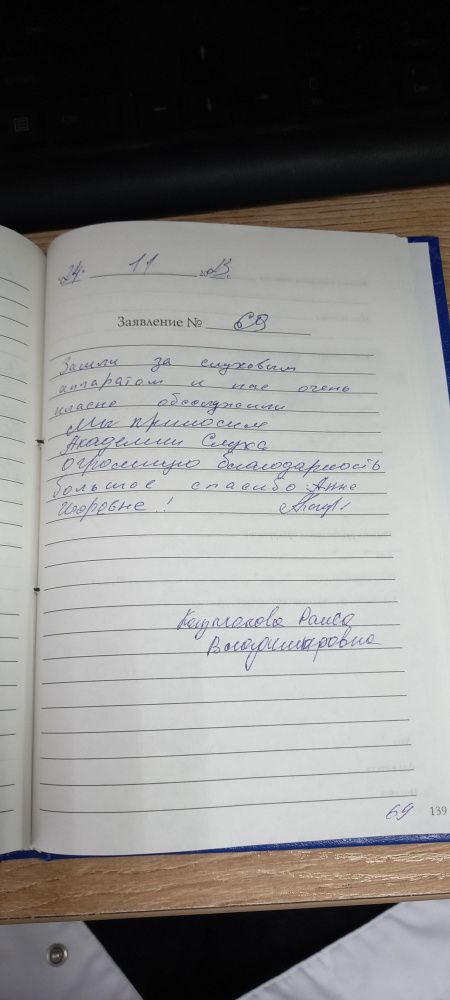 «24» 11 2023 г.
Заявление № 69
Зашли за слуховым
аппаратом и нас очень
класно обслужили
Мы приносим
Академии Слуха
огромную благодарность
большое спасибо Анне
Игоровне!
Раиса
Владимировна
69 139